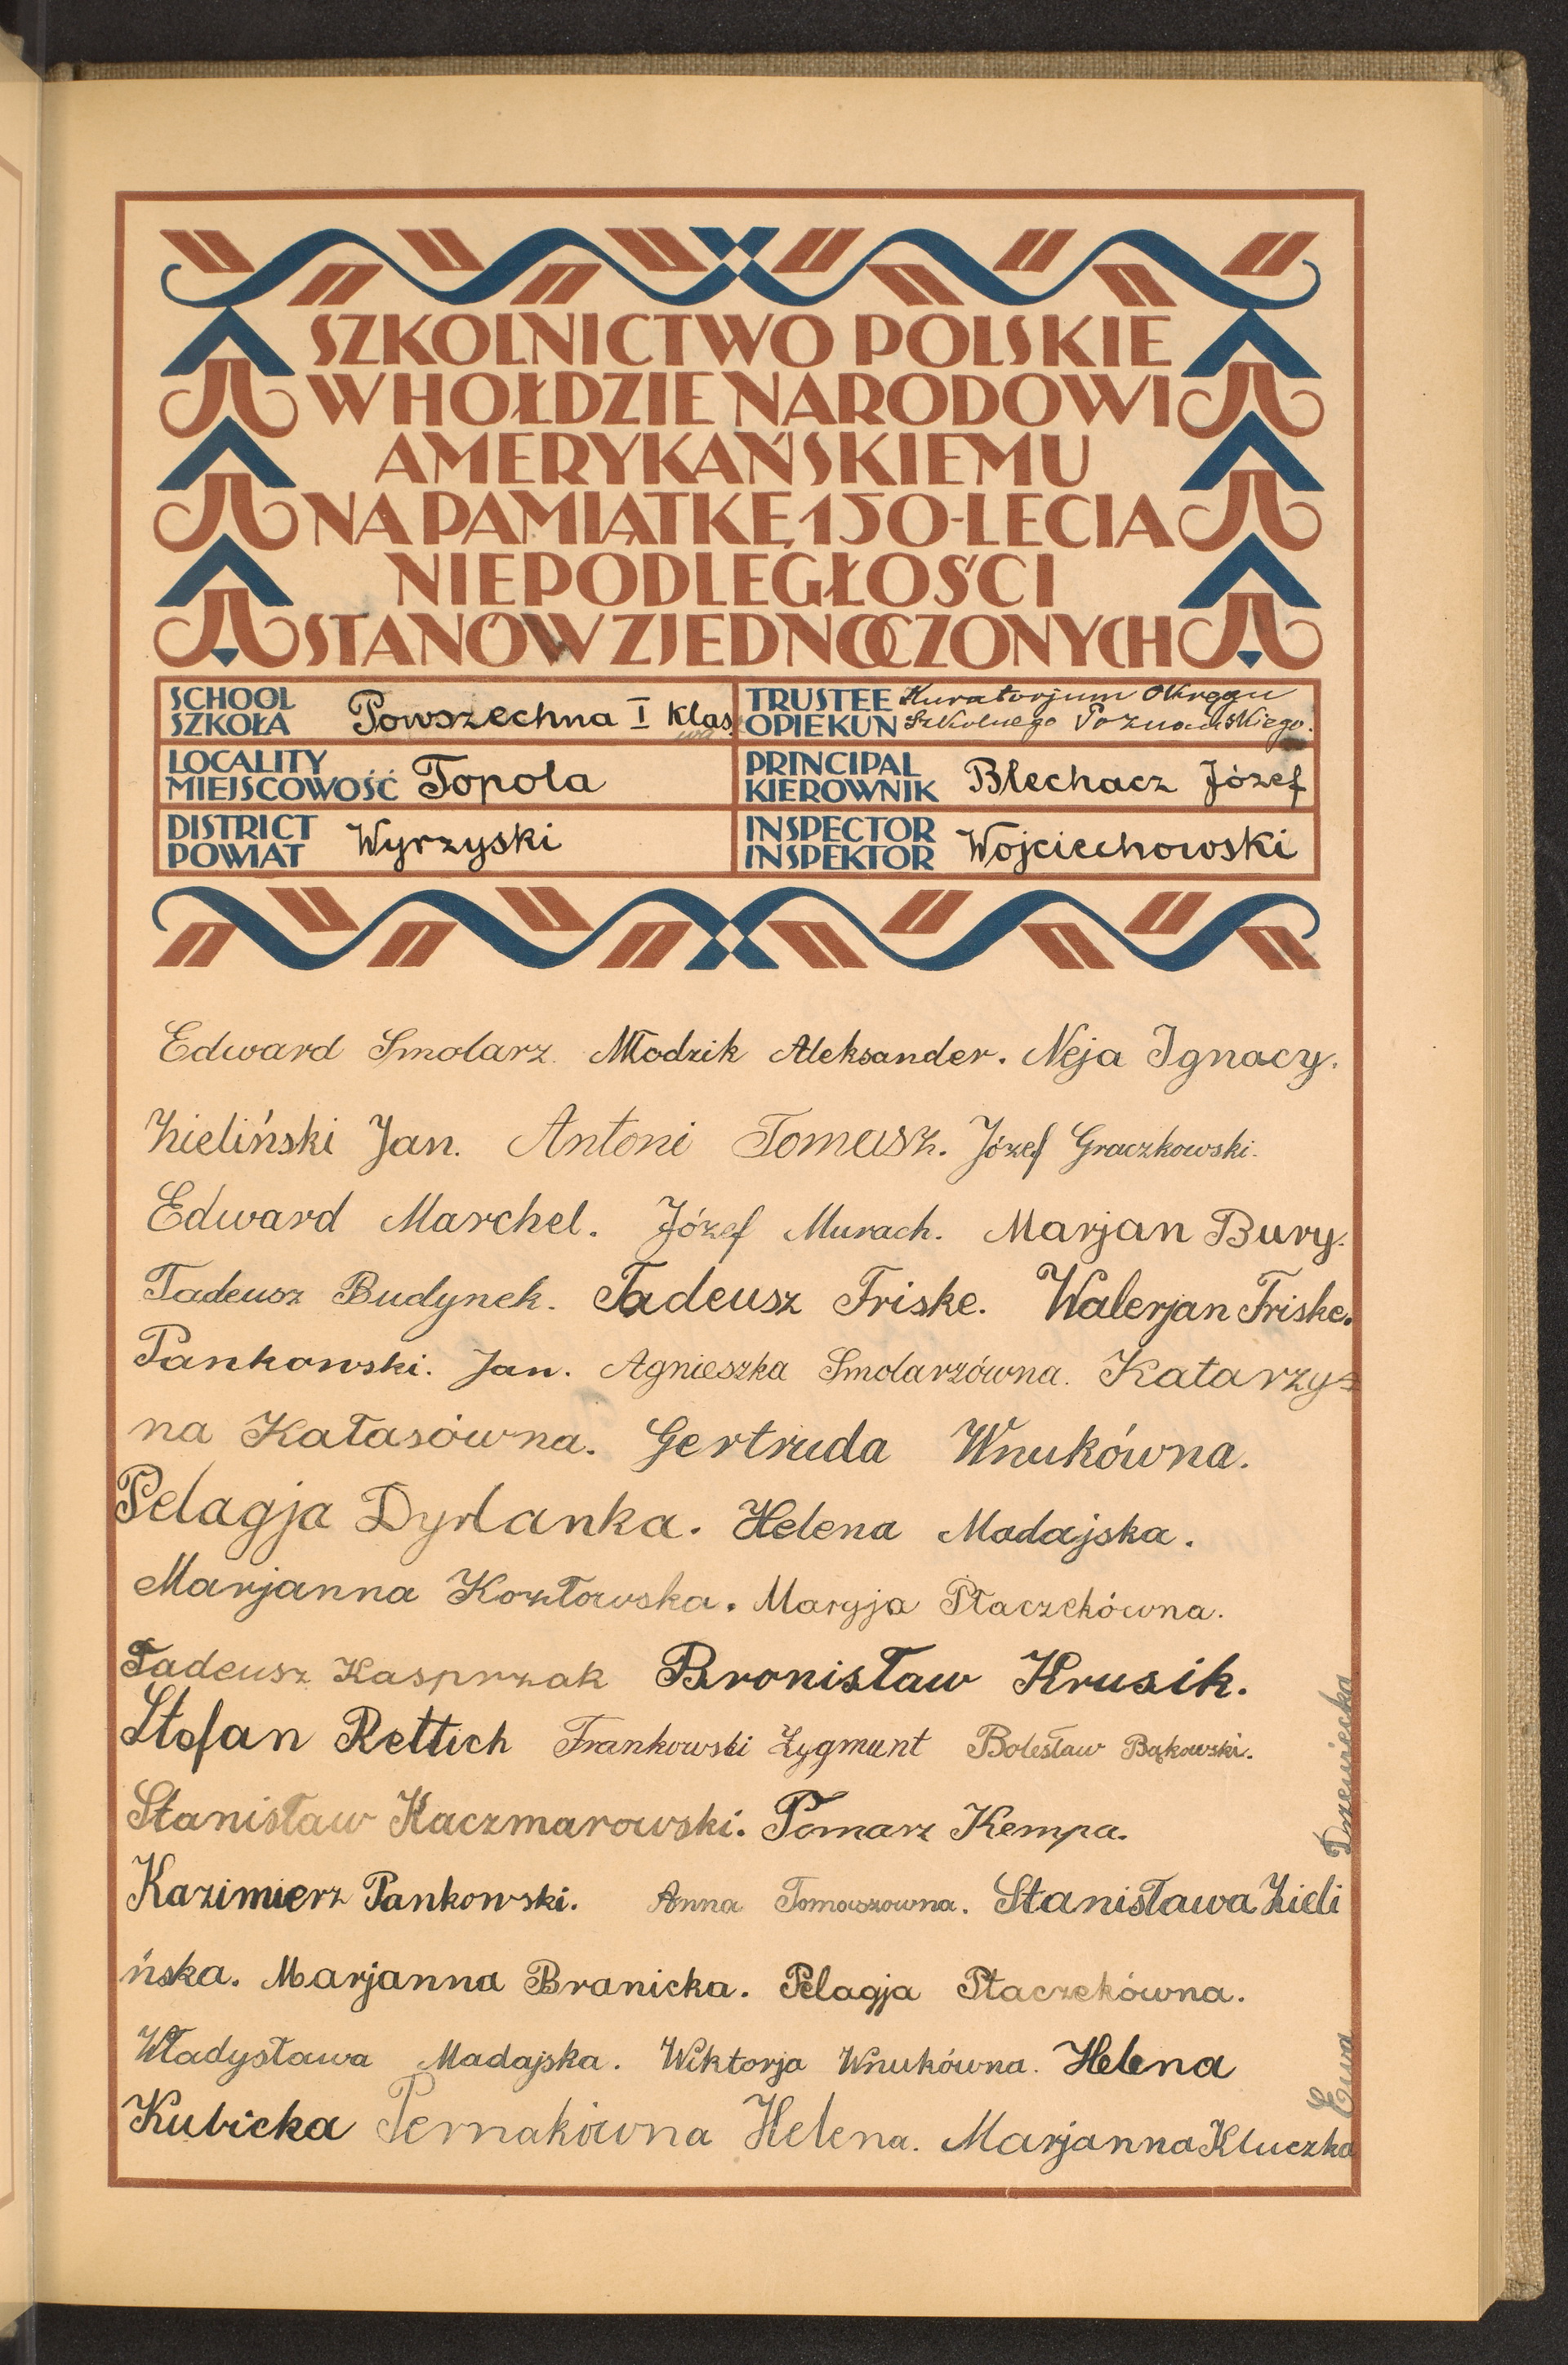 SZKOLNICTWO POLSKIE
W HOŁDZIE NARODOWI
AMERYKAŃSKIEMU
NA PAMIĄTKĘ 150-LECIA
NIEPODLEGŁOŚCI
STANÓW ZJEDNOCZONYCH
SCHOOL
SZKOŁA
Powszechna I klas.
wa
TRUSTEE
OPIEKUN
Kuratorjum Okręgu
Szkolnego Poznańskiego.
LOCALITY
MIEJSCOWOŚĆ
Topola
PRINCIPAL
KIEROWNIK
Blechacz Józef
DISTRICT
POWIAT
Wyrzyski
INSPECTOR
INSPEKTOR
Wojciechowski
Edward Smolarz. Młodzik Aleksander. Neja Ignacy.
Zieliński Jan. Antoni Tomasz. Józef Graczkowski.
Edward Marchel. Józef Murach. Marjan Bury.
Tadeusz Budynek. Tadeusz Friske. Walerjan Friske.
Pankowski. Jan. Agnieszka Smolarzówna. Katarzy=
na Kałasówna. Gertruda Wnukówna.
Pelagja Dyrlanka. Helena Madajska.
Marjanna Kozłowska. Maryja Ptaczekówna.
Tadeusz Kasprzak Bronisław Krusik.
Stefan Rettich Frankowski Zygmunt Bolesław Bąkowski.
Stanisław Kaczmarowski. Tomarz Kempa.
Kazimierz Pankowski. Anna Tomaszowna. Stanisława Zieli
ńska. Marjanna Branicka. Pelagja Ptaczekówna.
Władysława Madajska. Wiktorja Wnukówna. Helena
Kubicka Pernakówna Helena. Marjanna Kluczka
Ewa Drzewiecka